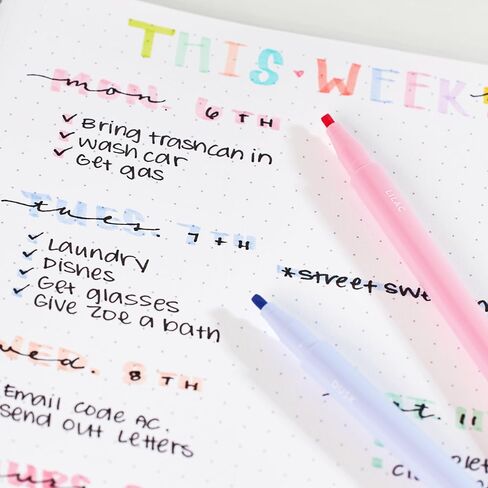 THIS WEEK
mon. 6TH
Bring trashcan in
wash car
Get gas
tues. 7TH
Laundry
Dishes
Get glasses
Give Zoe a bath
*street swe
wed. 8TH
Email Code AC.
Send out Letters
LILAC
DUSK